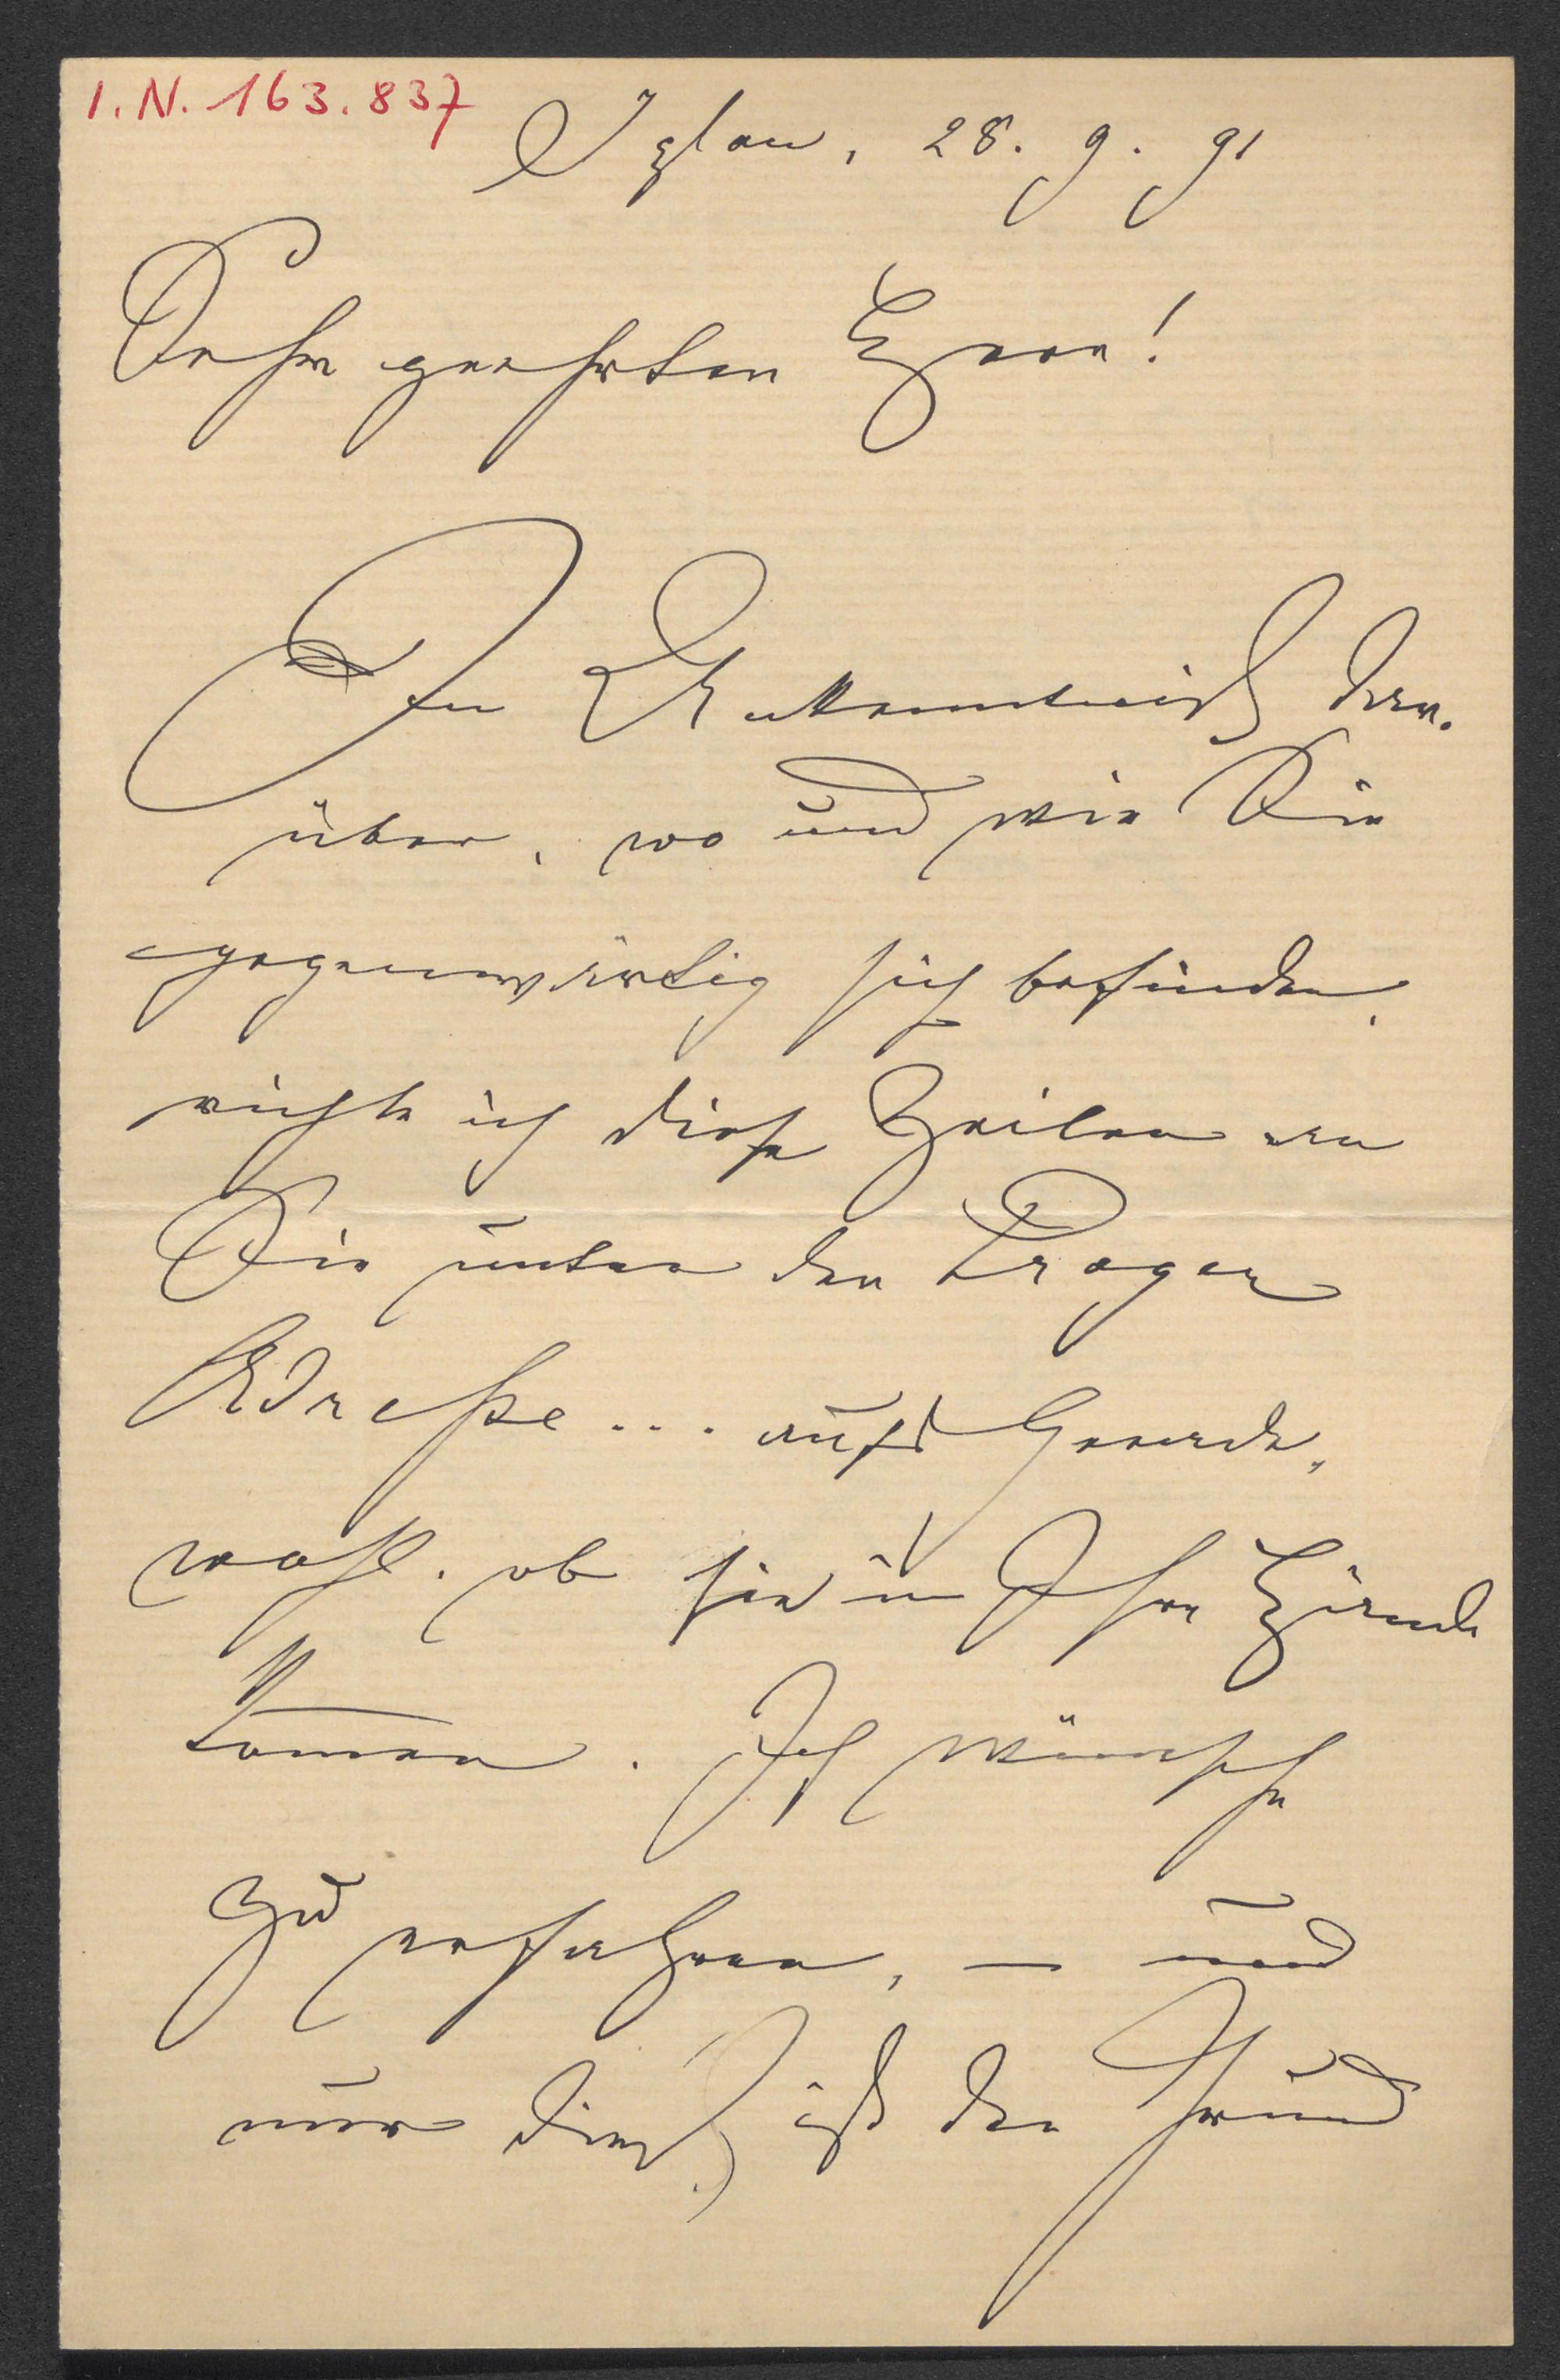 I.N. 163.837
Iglau, 28. 9. 91
Sehr geehrter Herr!
In Unkenntniß dar-
über, wo und wie Sie
gegenwärtig sich befinden,
richte ich diese Zeilen an
Sie unter der Prager
Adresse... aufs Gerade-
wohl, ob sie in Ihre Hände
kom̅en. Ich wünsche
zu erfahren, – und
nur dieß ist der Grund